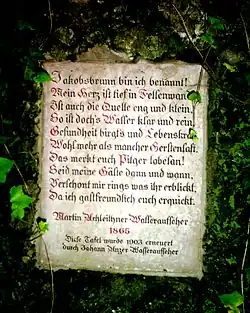 Jakobsbrunn bin ich benannt!
Mein Herz ist tief in Felsenwand
Ist auch die Quelle eng und klein,
So ist doch's Wasser klar und rein,
Gesundheit birgt's und Lebenskraft
Wohl mehr als mancher Gerstensaft.
Das merkt euch Pilger lobesan!
Seid meine Gäste dann und wann,
Verschont mir rings was ihr erblickt,
Da ich gastfreundlich euch erquickt.
Martin Achleithner Wasseraufseher
1865
Diese Tafel wurde 1903 erneuert
durch Johann Unzer Wasseraufseher